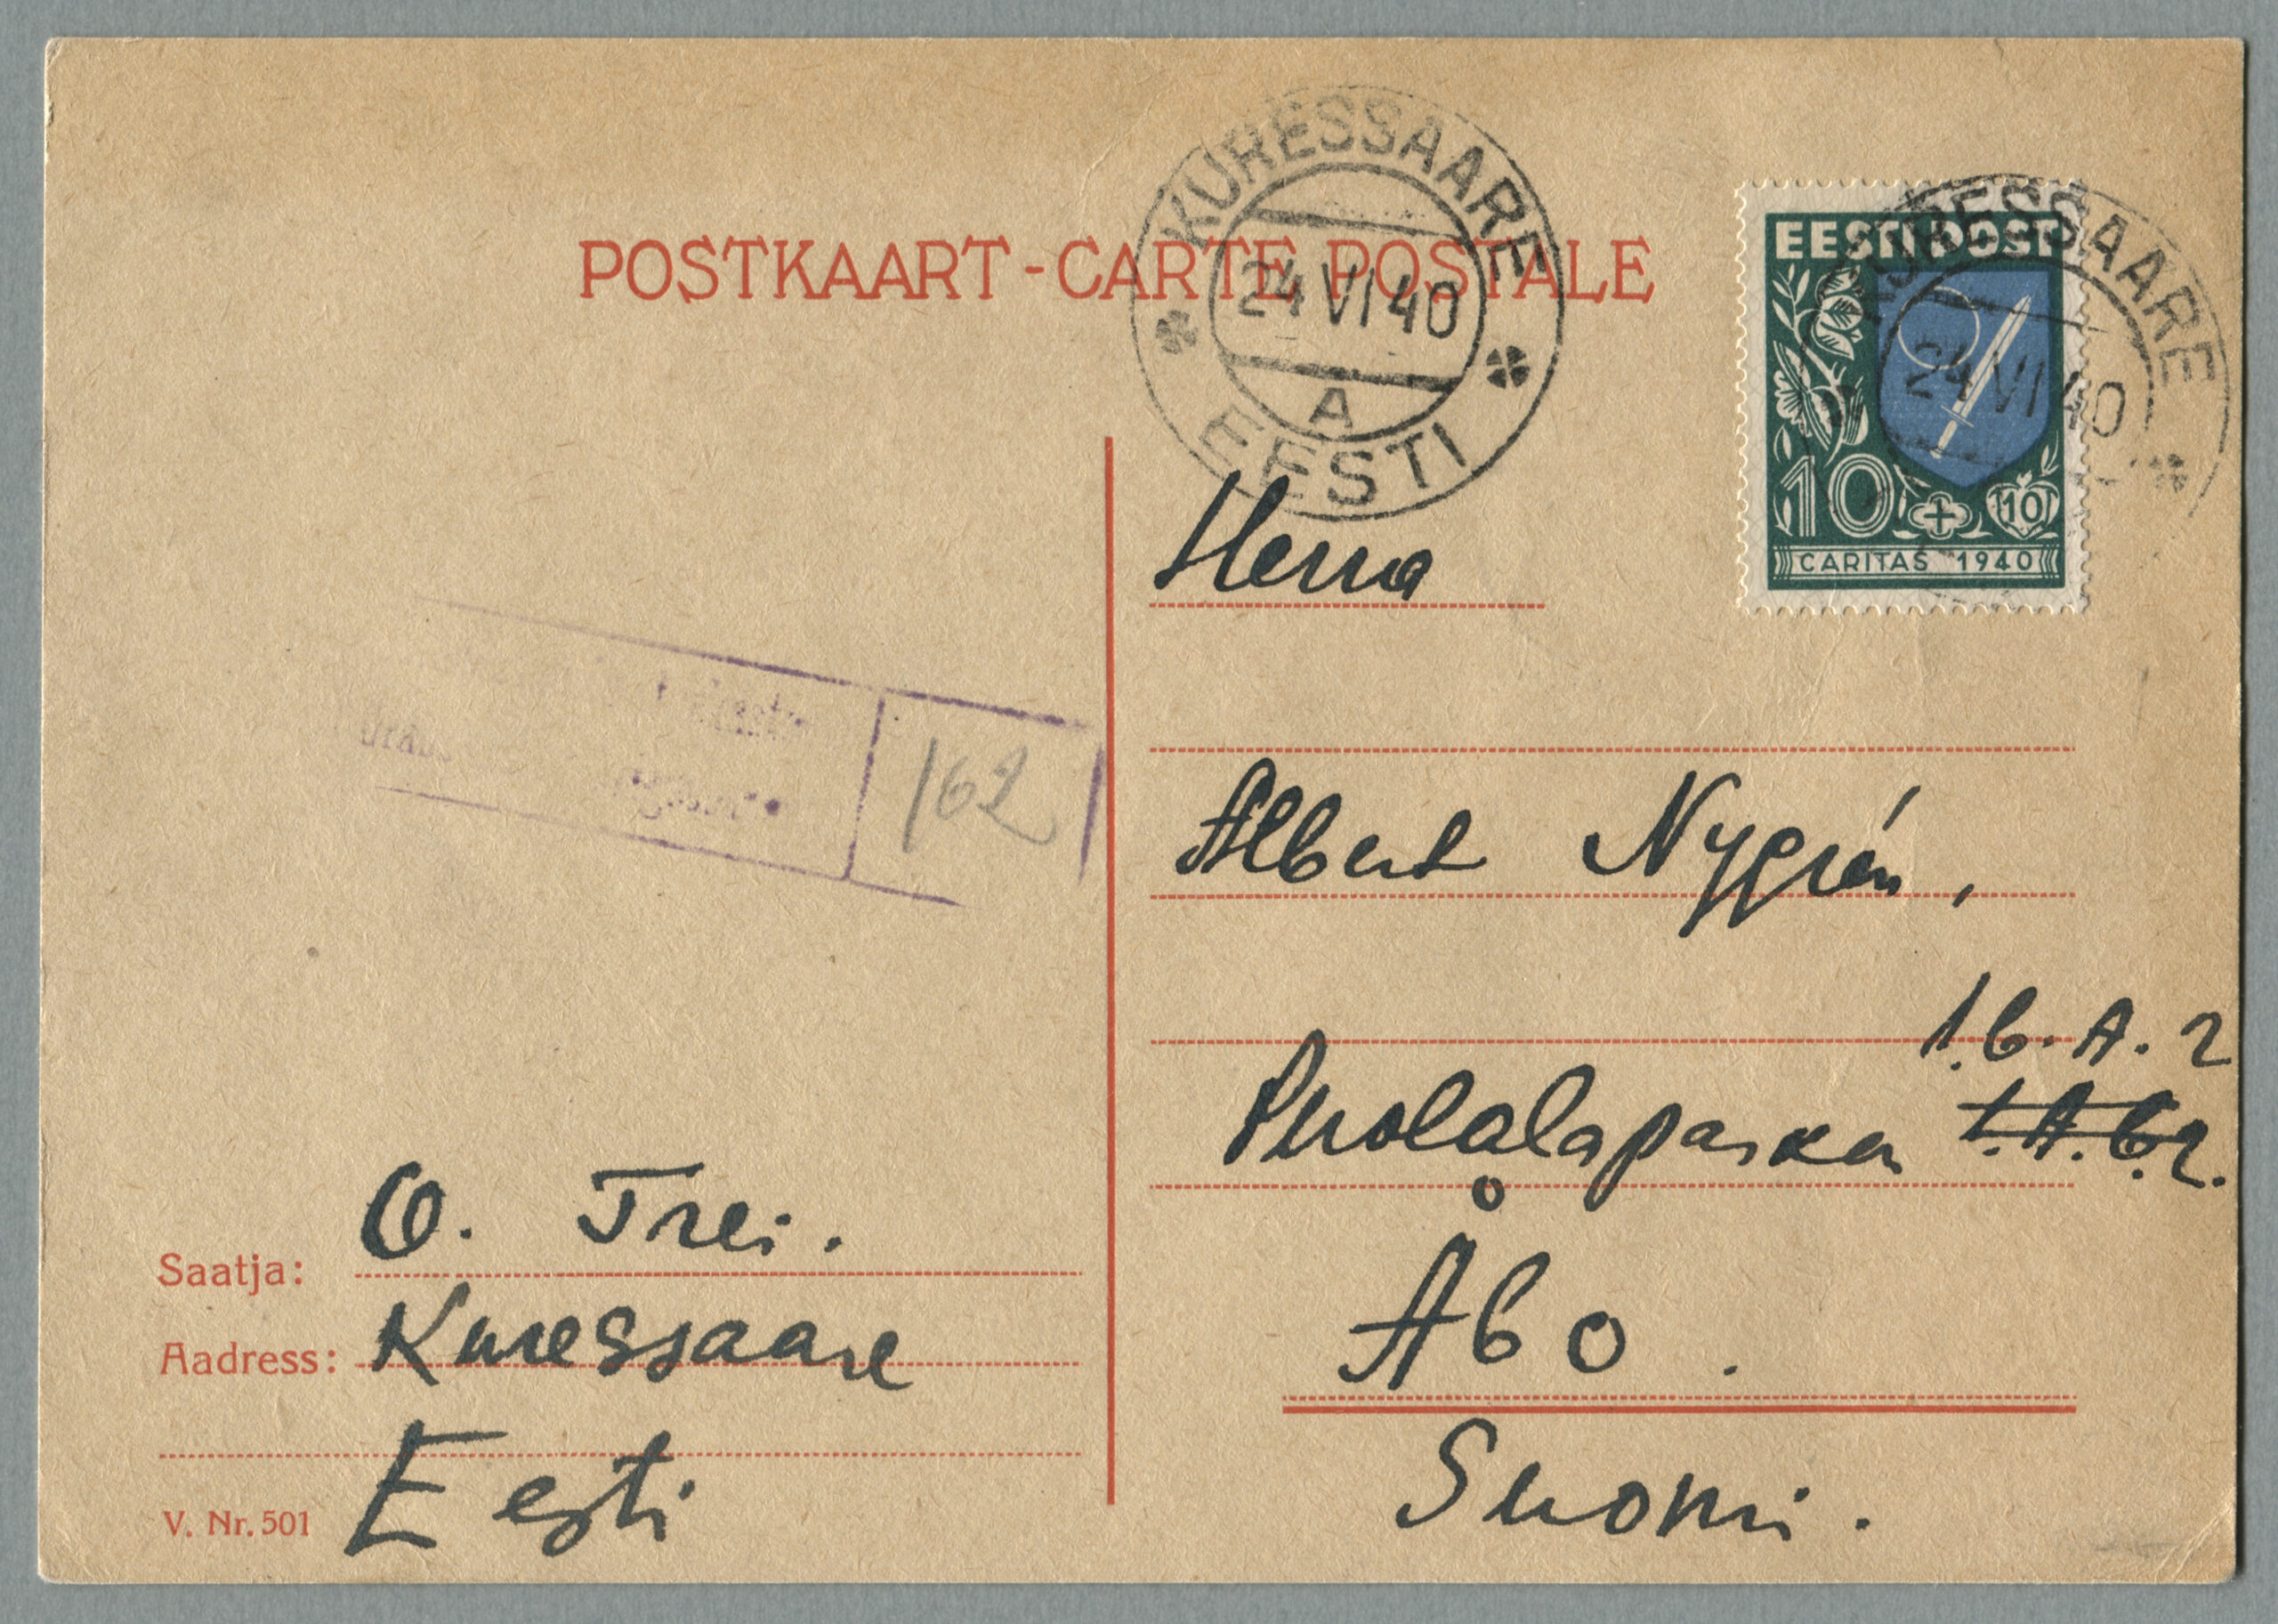 POSTKAART - CARTE POSTALE
KURESSAARE
24 VI 40
A
EESTI
EESTI POST
10 + 10
CARITAS 1940
KURESSAARE
24 VI 40
Herra
162
Albert Nygrén,
1. b. A. 2
Puolalaparken 1. A. b. 2.
Åbo.
Suomi.
Saatja: O. Trei.
Aadress: Kuressaare
Eesti
V. Nr. 501